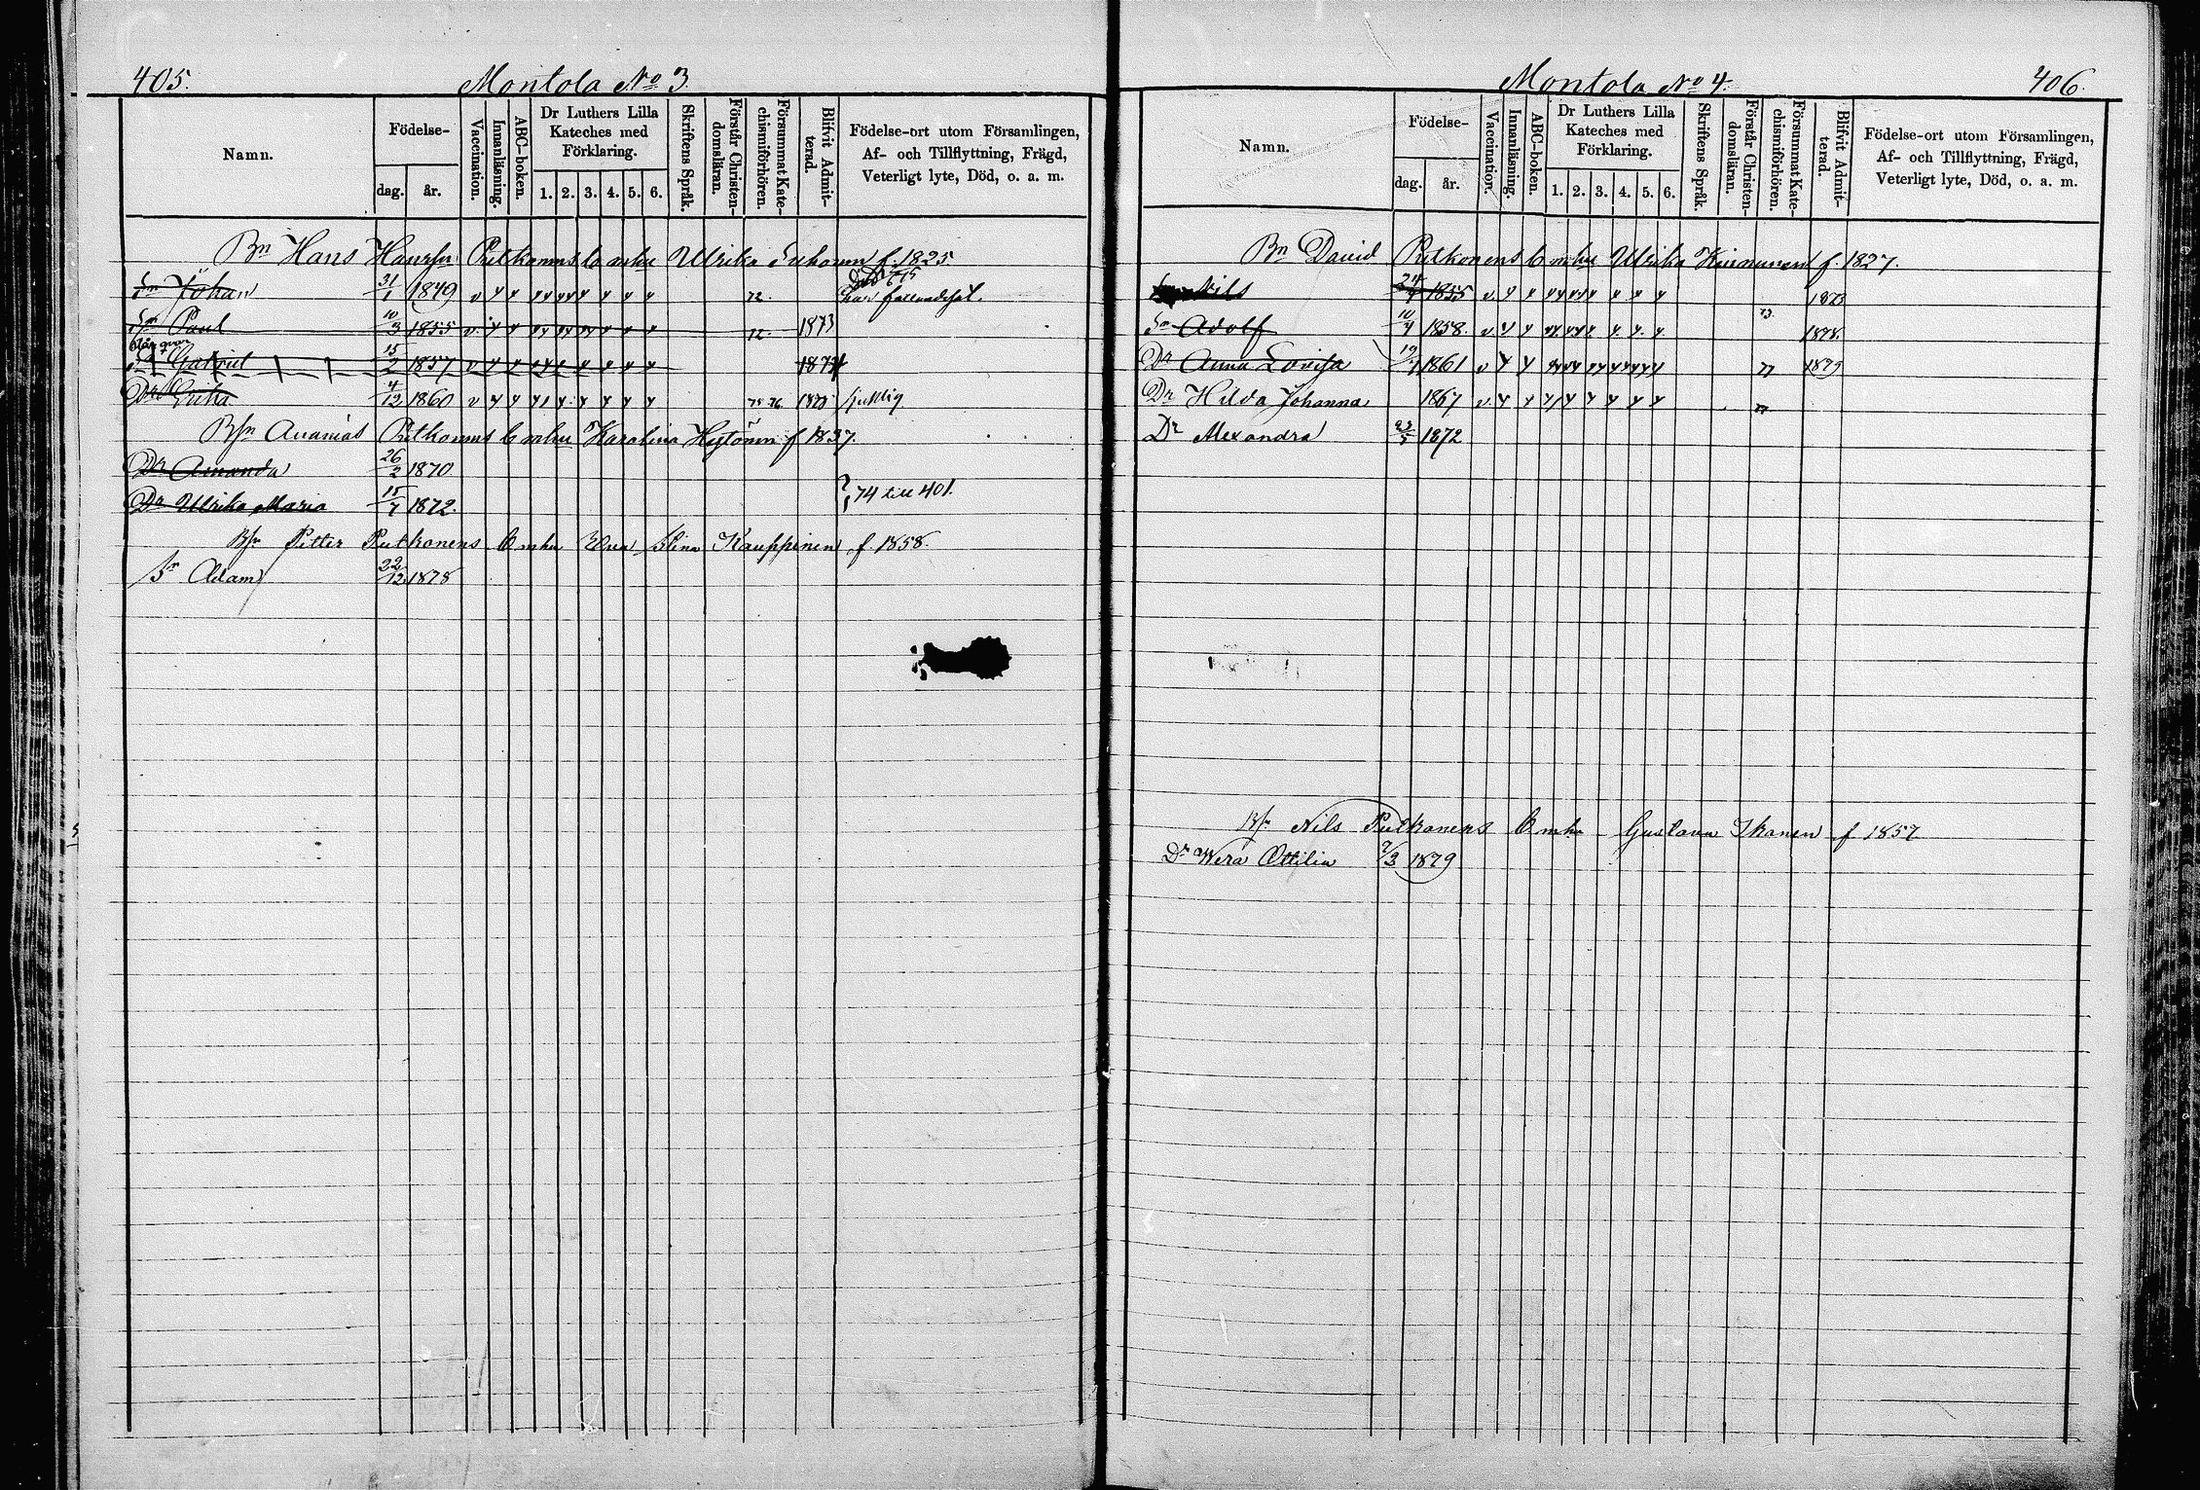 405.
Montola No 3.
Namn.
Födelse-
dag.
år.
Vaccination.
Innanläsning.
ABC-boken.
Dr Luthers Lilla Kateches med Förklaring.
1. 2. 3. 4. 5. 6.
Skriftens Språk.
Förstår Christen-domsläran.
Försummat Kate-chismiförhören.
Blifvit Admit-terad.
Födelse-ort utom Församlingen,
Af- och Tillflyttning, Frägd,
Veterligt lyte, Död, o. a. m.
Bn Hans Hansson Putkonens Ulrika f. 1825
Sn Johan 31/1 1849 v 72. har fallandesot.
Sn Paul 10/3 1855 v. 72. 1873
Sn Gabriel 15/2 1857 v
Dr Erika 4/12 1860 v 75 76 sjuklig
Bsn Ananias Putkonens Karolina Hytönen f 1837.
Dr Amanda 26/2 1870
Dr Ulrika Maria 15/7 1872. 74 till 401.
Bsn Petter Putkonens Omhu Eva Stina Kauppinen f. 1858.
Sn Adam 22/12 1878
406.
Montola No 4.
Namn.
Födelse-
dag.
år.
Vaccination.
Innanläsning.
ABC-boken.
Dr Luthers Lilla Kateches med Förklaring.
1. 2. 3. 4. 5. 6.
Skriftens Språk.
Förstår Christen-domsläran.
Försummat Kate-chismiförhören.
Blifvit Admit-terad.
Födelse-ort utom Församlingen,
Af- och Tillflyttning, Frägd,
Veterligt lyte, Död, o. a. m.
Bn David Putkonens Ulrika Kinnunen f. 1827.
Nils 1855 v.
Sn Adolf 10/4 1858. v 73. 1878.
Dr Anna Lovisa 19/7 1861 v 77 1879
Dr Hilda Johanna 1867 v. 77
Dr Alexandra 1872
Bsn Nils Putkonens Omhu Gustava Ikonen f 1857
Dr Wera Ottilia 2/3 1879